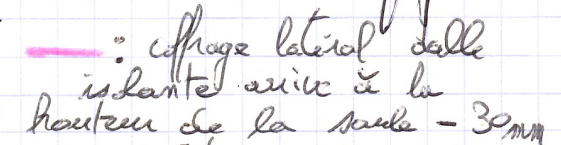 : coffrage latéral dalle
isolante arrive à la
hauteur de la saule - 30mm